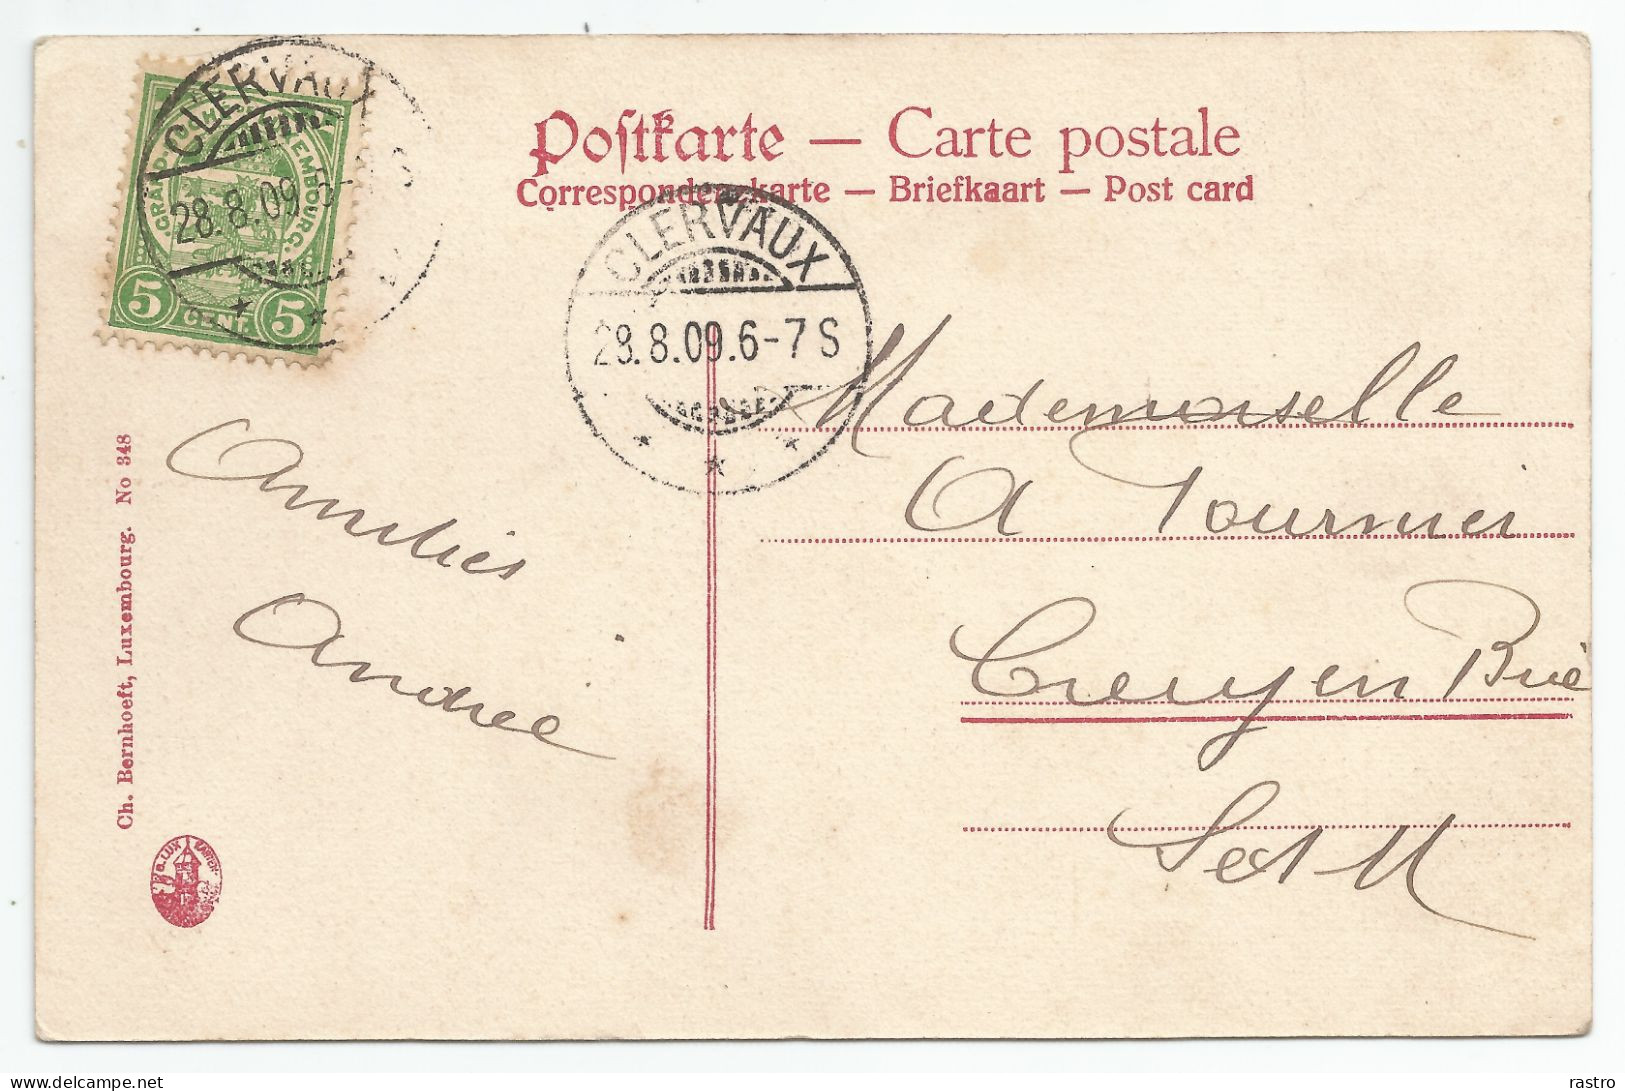 Postkarte — Carte postale
Correspondenzkarte — Briefkaart — Post card
CLERVAUX
28.8.09.5-
GRAND-
LUXEMBOURG.
5 CENT. 5
CLERVAUX
28.8.09.6-7 S
Mademoiselle
A Tournier
Crecy en Brie
S et M
Amitiés
Andrée
Ch. Bernhoeft, Luxembourg. No 348
LUX KARTEN
delcampe.net
rastro